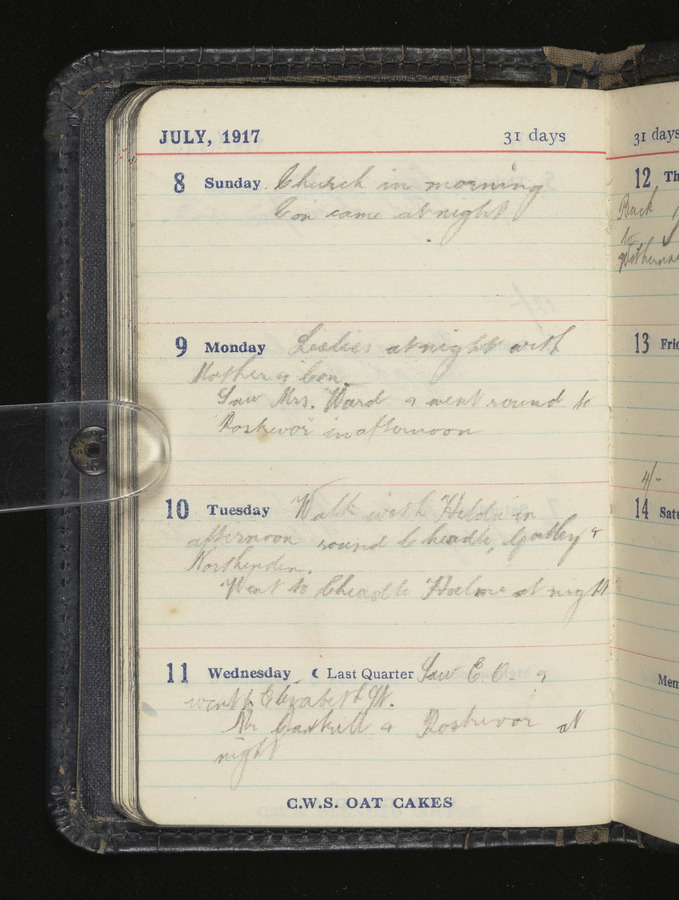 JULY, 1917 31 days
8 Sunday Church in morning
Con came at night
9 Monday Leslies at night with
Mother & Con.
Saw Mrs. Ward & went round to
Roskevor in afternoon
10 Tuesday Walk with Hilda in
afternoon round Cheadle, Gatley &
Northenden.
Went to Cheadle Hulme at night
11 Wednesday ☾ Last Quarter Saw E. O. &
went Elizabeth St.
Mr Gaskell & Roskevor at
night
C.W.S. OAT CAKES
31 days
12 Th
Back
to
13 Frid
4/-
14 Satu
Mem